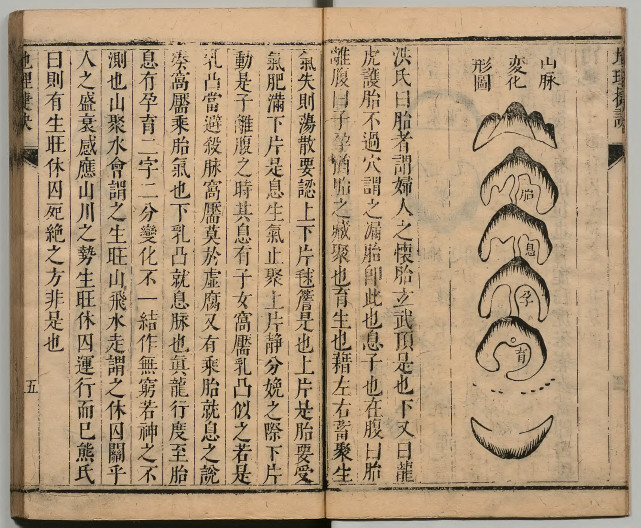 山脉
變化
形圖
胎
息
孕
育
洪氏曰胎者謂婦人之懷胎玄武頂是也下又曰龍
虎護胎不過穴謂之漏胎卽此也息子也在腹曰胎
離腹曰子孕猶胎之藏聚也育生也藉左右畜聚生
氣失則蕩散要認上下片毬簷是也上片是胎要受
氣肥滿下片是息生氣止聚上片靜分娩之際下片
動是子離腹之時其息有子女窩靨乳凸似之若是
乳凸當避殺脉窩靨莫於虛腐又有乘胎就息之說
湊高靨乘胎氣也下乳凸就息脉也眞龍行度至胎
息有孕育二字二分變化不一結作無窮若神之不
測也山聚水會謂之生旺山飛水走謂之休囚關乎
人之盛衰感應山川之勢生旺休囚運行而已熊氏
曰則有生旺休囚死絶之方非是也
五